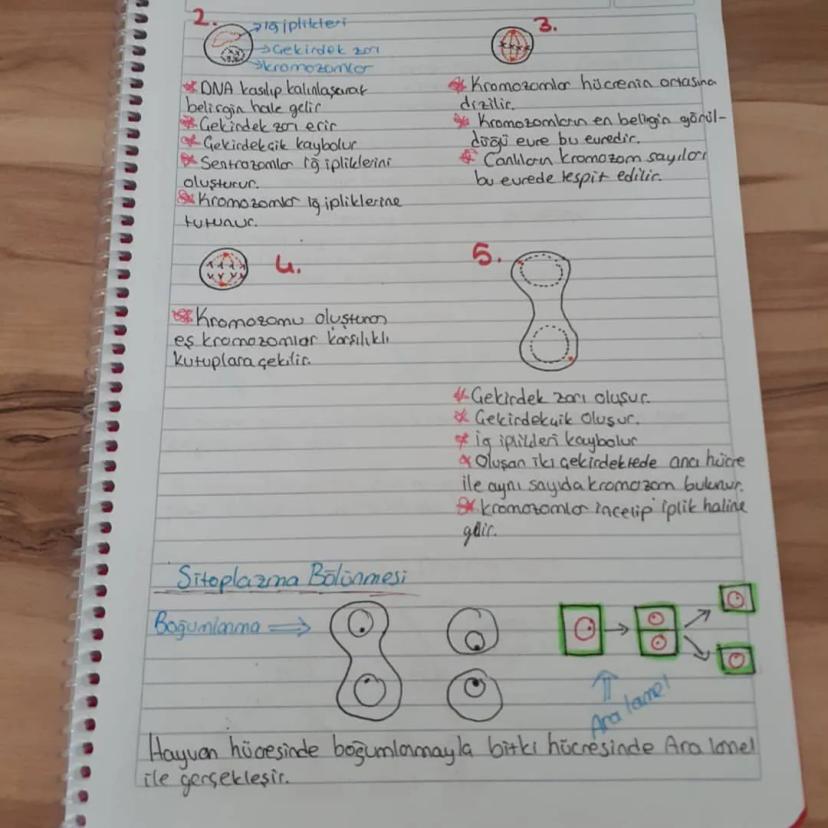 2.
iğ iplikleri
Çekirdek zarı
kromozomlar
* DNA kasılıp kalınlaşarak
belirgin hale gelir
* Çekirdek zarı erir
* Çekirdekçik kaybolur
* Sentrozomlar iğ ipliklerini
oluşturur.
* Kromozomlar iğ ipliklerine
tutunur.
3.
* Kromozomlar hücrenin ortasına
dizilir.
* Kromozomların en belirgin görül-
düğü evre bu evredir.
* Canlıların kromozom sayıları
bu evrede tespit edilir.
4.
* Kromozomu oluşturan
eş kromozomlar karşılıklı
kutuplara çekilir.
5.
* Çekirdek zarı oluşur.
* Çekirdekçik oluşur.
* iğ iplikleri kaybolur
* Oluşan iki çekirdektede ana hücre
ile aynı sayıda kromozom bulunur.
* kromozomlar incelip iplik haline
gelir.
Sitoplazma Bölünmesi
Boğumlanma
Ara lamel
Hayvan hücresinde boğumlanmayla bitki hücresinde Ara lamel
ile gerçekleşir.